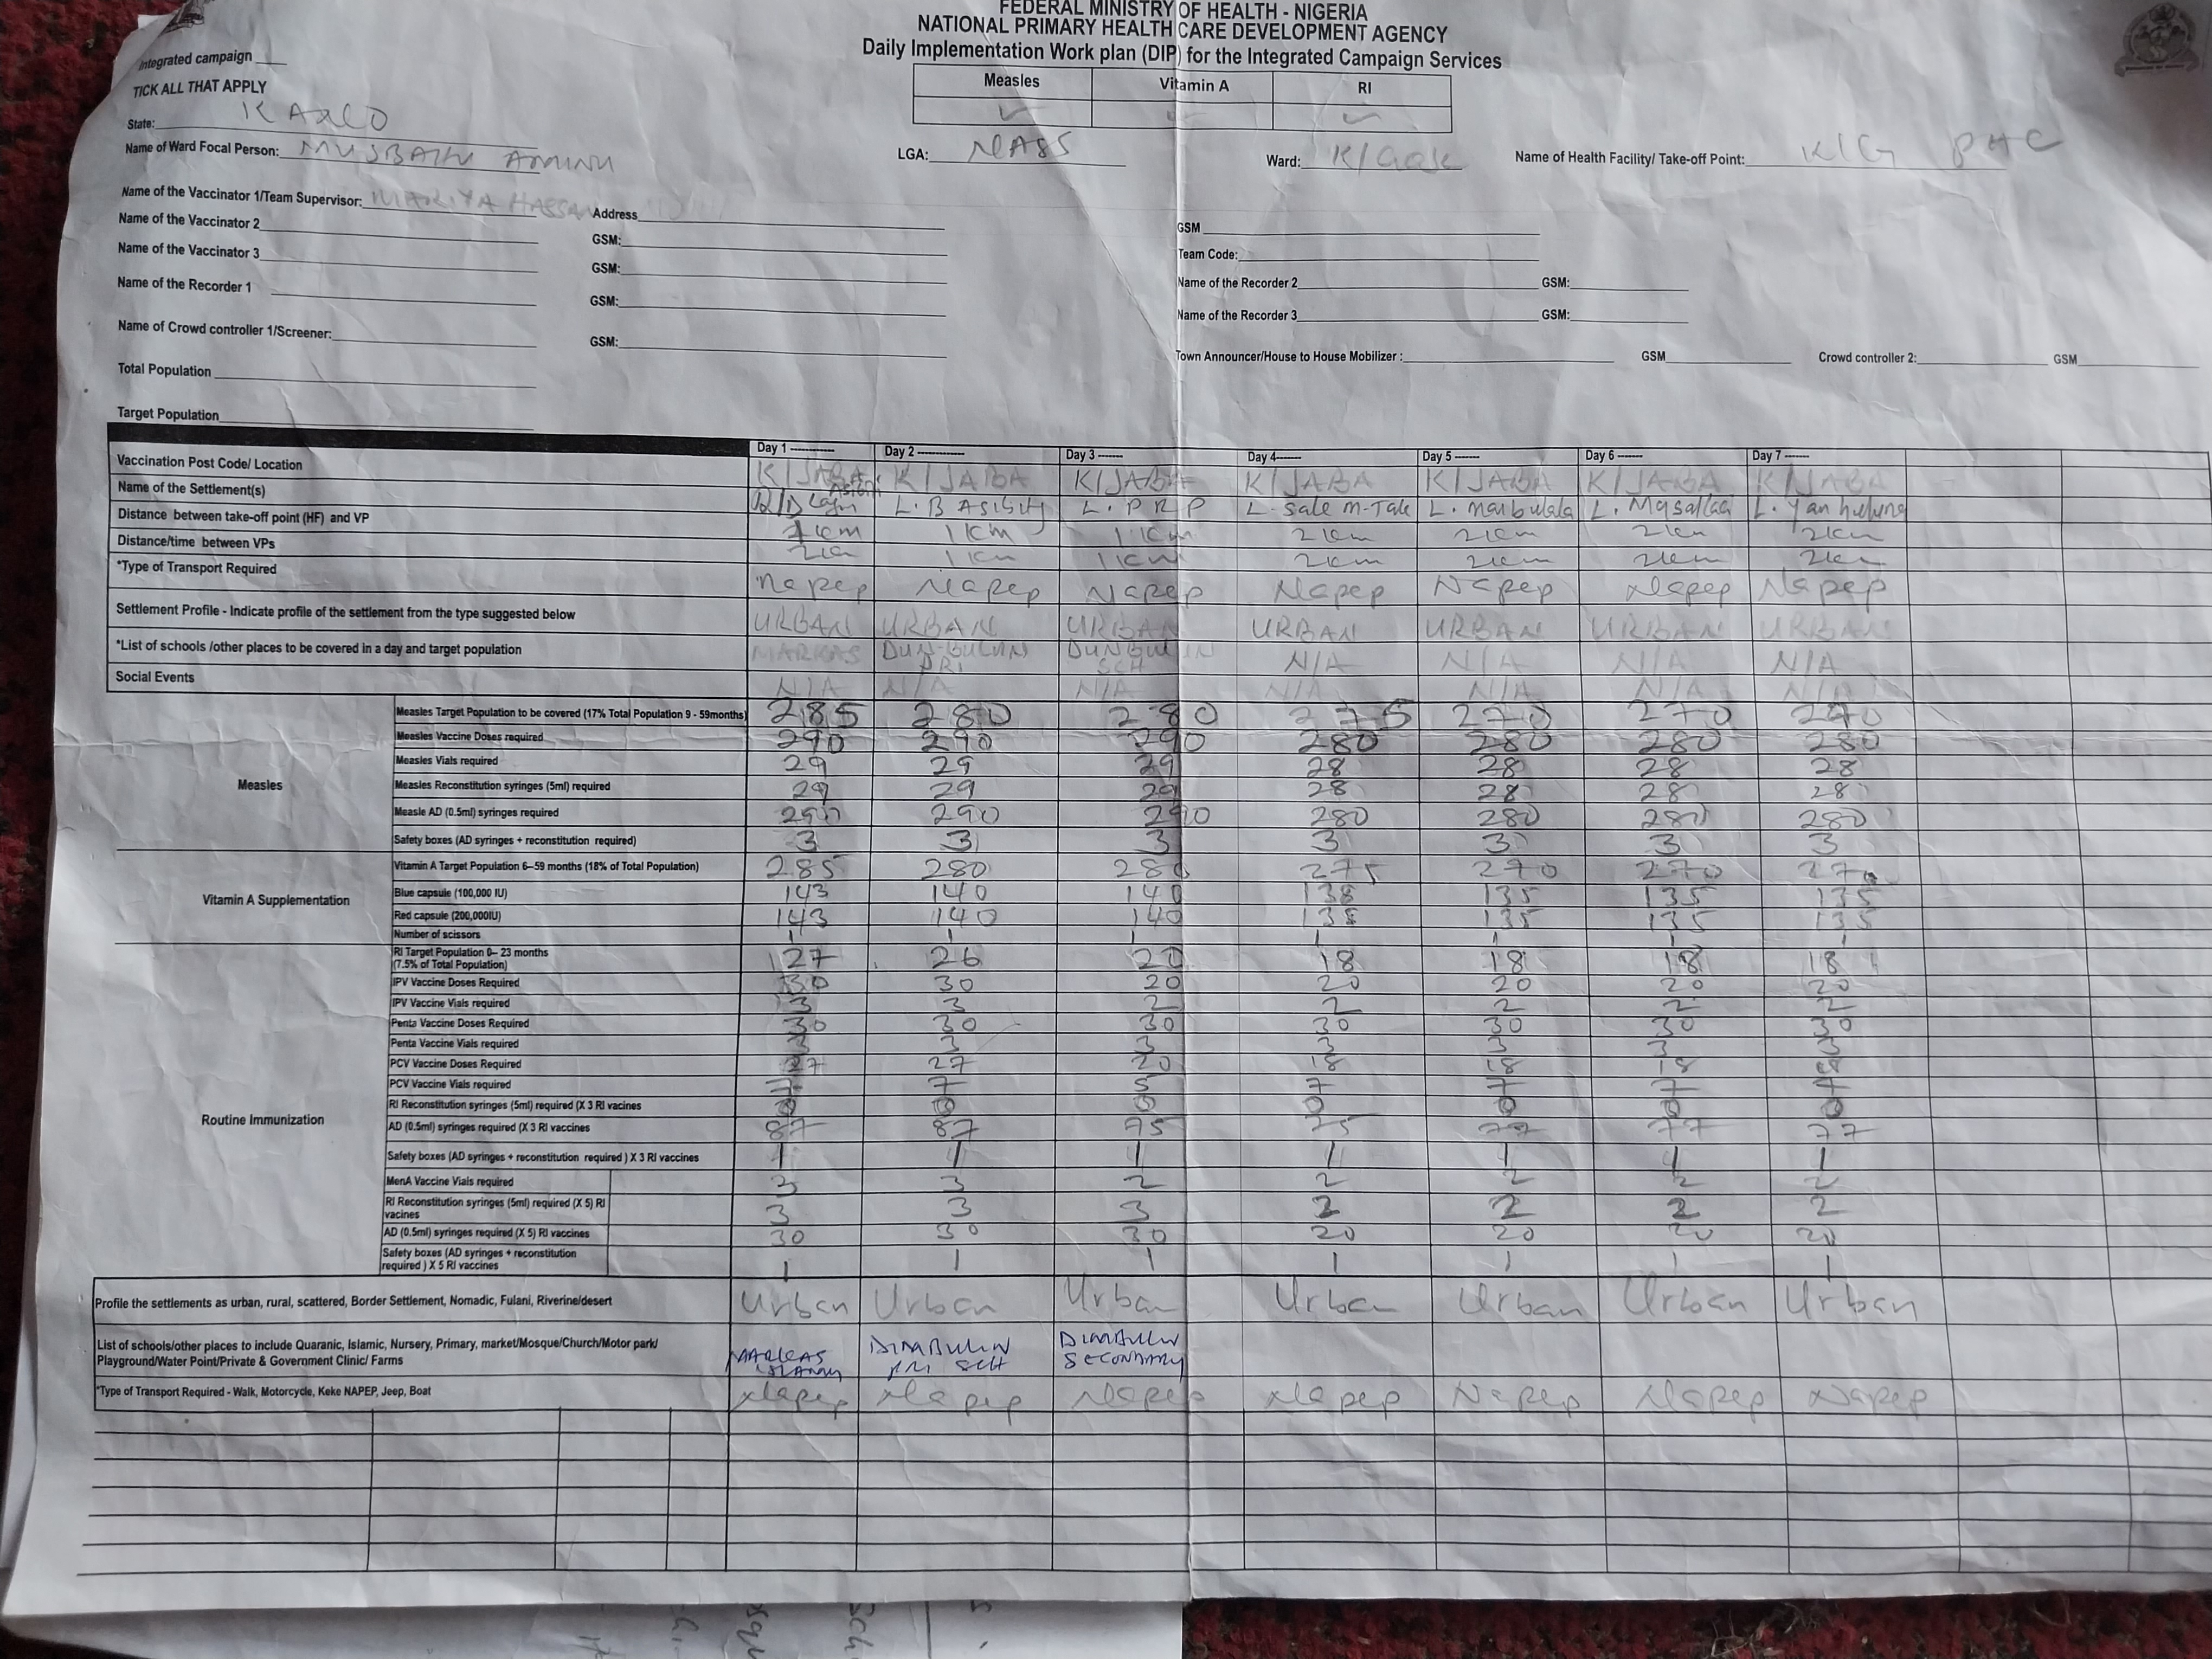 FEDERAL MINISTRY OF HEALTH - NIGERIA
NATIONAL PRIMARY HEALTH CARE DEVELOPMENT AGENCY
Daily Implementation Work plan (DIP) for the Integrated Campaign Services
Integrated campaign
TICK ALL THAT APPLY
Measles Vitamin A RI
State: KANO LGA: Ward: Name of Health Facility/ Take-off Point: K/G PHC
Name of Ward Focal Person: AMINU
Name of the Vaccinator 1/Team Supervisor: Address GSM
Name of the Vaccinator 2 GSM: Team Code:
Name of the Vaccinator 3 GSM: Name of the Recorder 2 GSM:
Name of the Recorder 1 GSM: Name of the Recorder 3 GSM:
Name of Crowd controller 1/Screener: GSM: Town Announcer/House to House Mobilizer : GSM Crowd controller 2: GSM
Total Population
Target Population
Day 1 Day 2 Day 3 Day 4 Day 5 Day 6 Day 7
Vaccination Post Code/ Location
Name of the Settlement(s) K/JABA K/JABA K/JABA K/JABA K/JABA K/JABA
Distance between take-off point (HF) and VP
Distance/time between VPs
*Type of Transport Required napep Napep Napep Napep Napep Napep Napep
Settlement Profile - Indicate profile of the settlement from the type suggested below URBAN URBAN URBAN URBAN URBAN URBAN URBAN
*List of schools /other places to be covered in a day and target population N/A N/A N/A N/A
Social Events N/A N/A N/A N/A N/A N/A N/A
Measles
Measles Target Population to be covered (17% Total Population 9 - 59months) 285 280 280 275 270 270 270
Measles Vaccine Doses required 290 290 290 280 280 280 280
Measles Vials required 29 29 29 28 28 28 28
Measles Reconstitution syringes (5ml) required 29 29 29 28 28 28 28
Measle AD (0.5ml) syringes required 290 290 290 280 280 280 280
Safety boxes (AD syringes + reconstitution required) 3 3 3 3 3 3 3
Vitamin A Supplementation
Vitamin A Target Population 6–59 months (18% of Total Population) 285 280 280 275 270 270 270
Blue capsule (100,000 IU) 143 140 140 138 135 135 135
Red capsule (200,000IU) 143 140 140 138 135 135 135
Number of scissors 1 1 1 1 1 1 1
Routine Immunization
RI Target Population 0– 23 months (7.5% of Total Population) 26 20 18 18 18 18
IPV Vaccine Doses Required 30 30 20 20 20 20 20
IPV Vaccine Vials required 3 3 2 2 2 2 2
Penta Vaccine Doses Required 30 30 30 30 30 30 30
Penta Vaccine Vials required 3 3 3 3 3 3 3
PCV Vaccine Doses Required 27 27 20 18 18 18 18
PCV Vaccine Vials required 7 7 5 7 7 7 7
RI Reconstitution syringes (5ml) required (X 3 RI vaccines 0 0 0 0 0 0 0
AD (0.5ml) syringes required (X 3 RI vaccines 87 87 75 75 77 77 77
Safety boxes (AD syringes + reconstitution required ) X 3 RI vaccines 1 1 1 1 1 1 1
MenA Vaccine Vials required 3 3 2 2 2 2 2
RI Reconstitution syringes (5ml) required (X 5) RI vaccines 3 3 3 2 2 2 2
AD (0.5ml) syringes required (X 5) RI vaccines 30 30 20 20 20 20
Safety boxes (AD syringes + reconstitution required ) X 5 RI vaccines 1 1 1 1 1 1 1
Profile the settlements as urban, rural, scattered, Border Settlement, Nomadic, Fulani, Riverine/desert Urban Urban Urban Urban Urban Urban Urban
List of schools/other places to include Quaranic, Islamic, Nursery, Primary, market/Mosque/Church/Motor park/ Playground/Water Point/Private & Government Clinic/ Farms
*Type of Transport Required - Walk, Motorcycle, Keke NAPEP, Jeep, Boat Napep Napep Napep Napep Napep Napep Napep